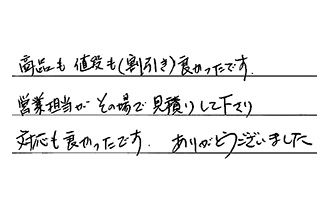 商品も値段も(割引き)良かったです.
営業担当がその場で見積りして下さり
対応も良かったです. ありがとうございました